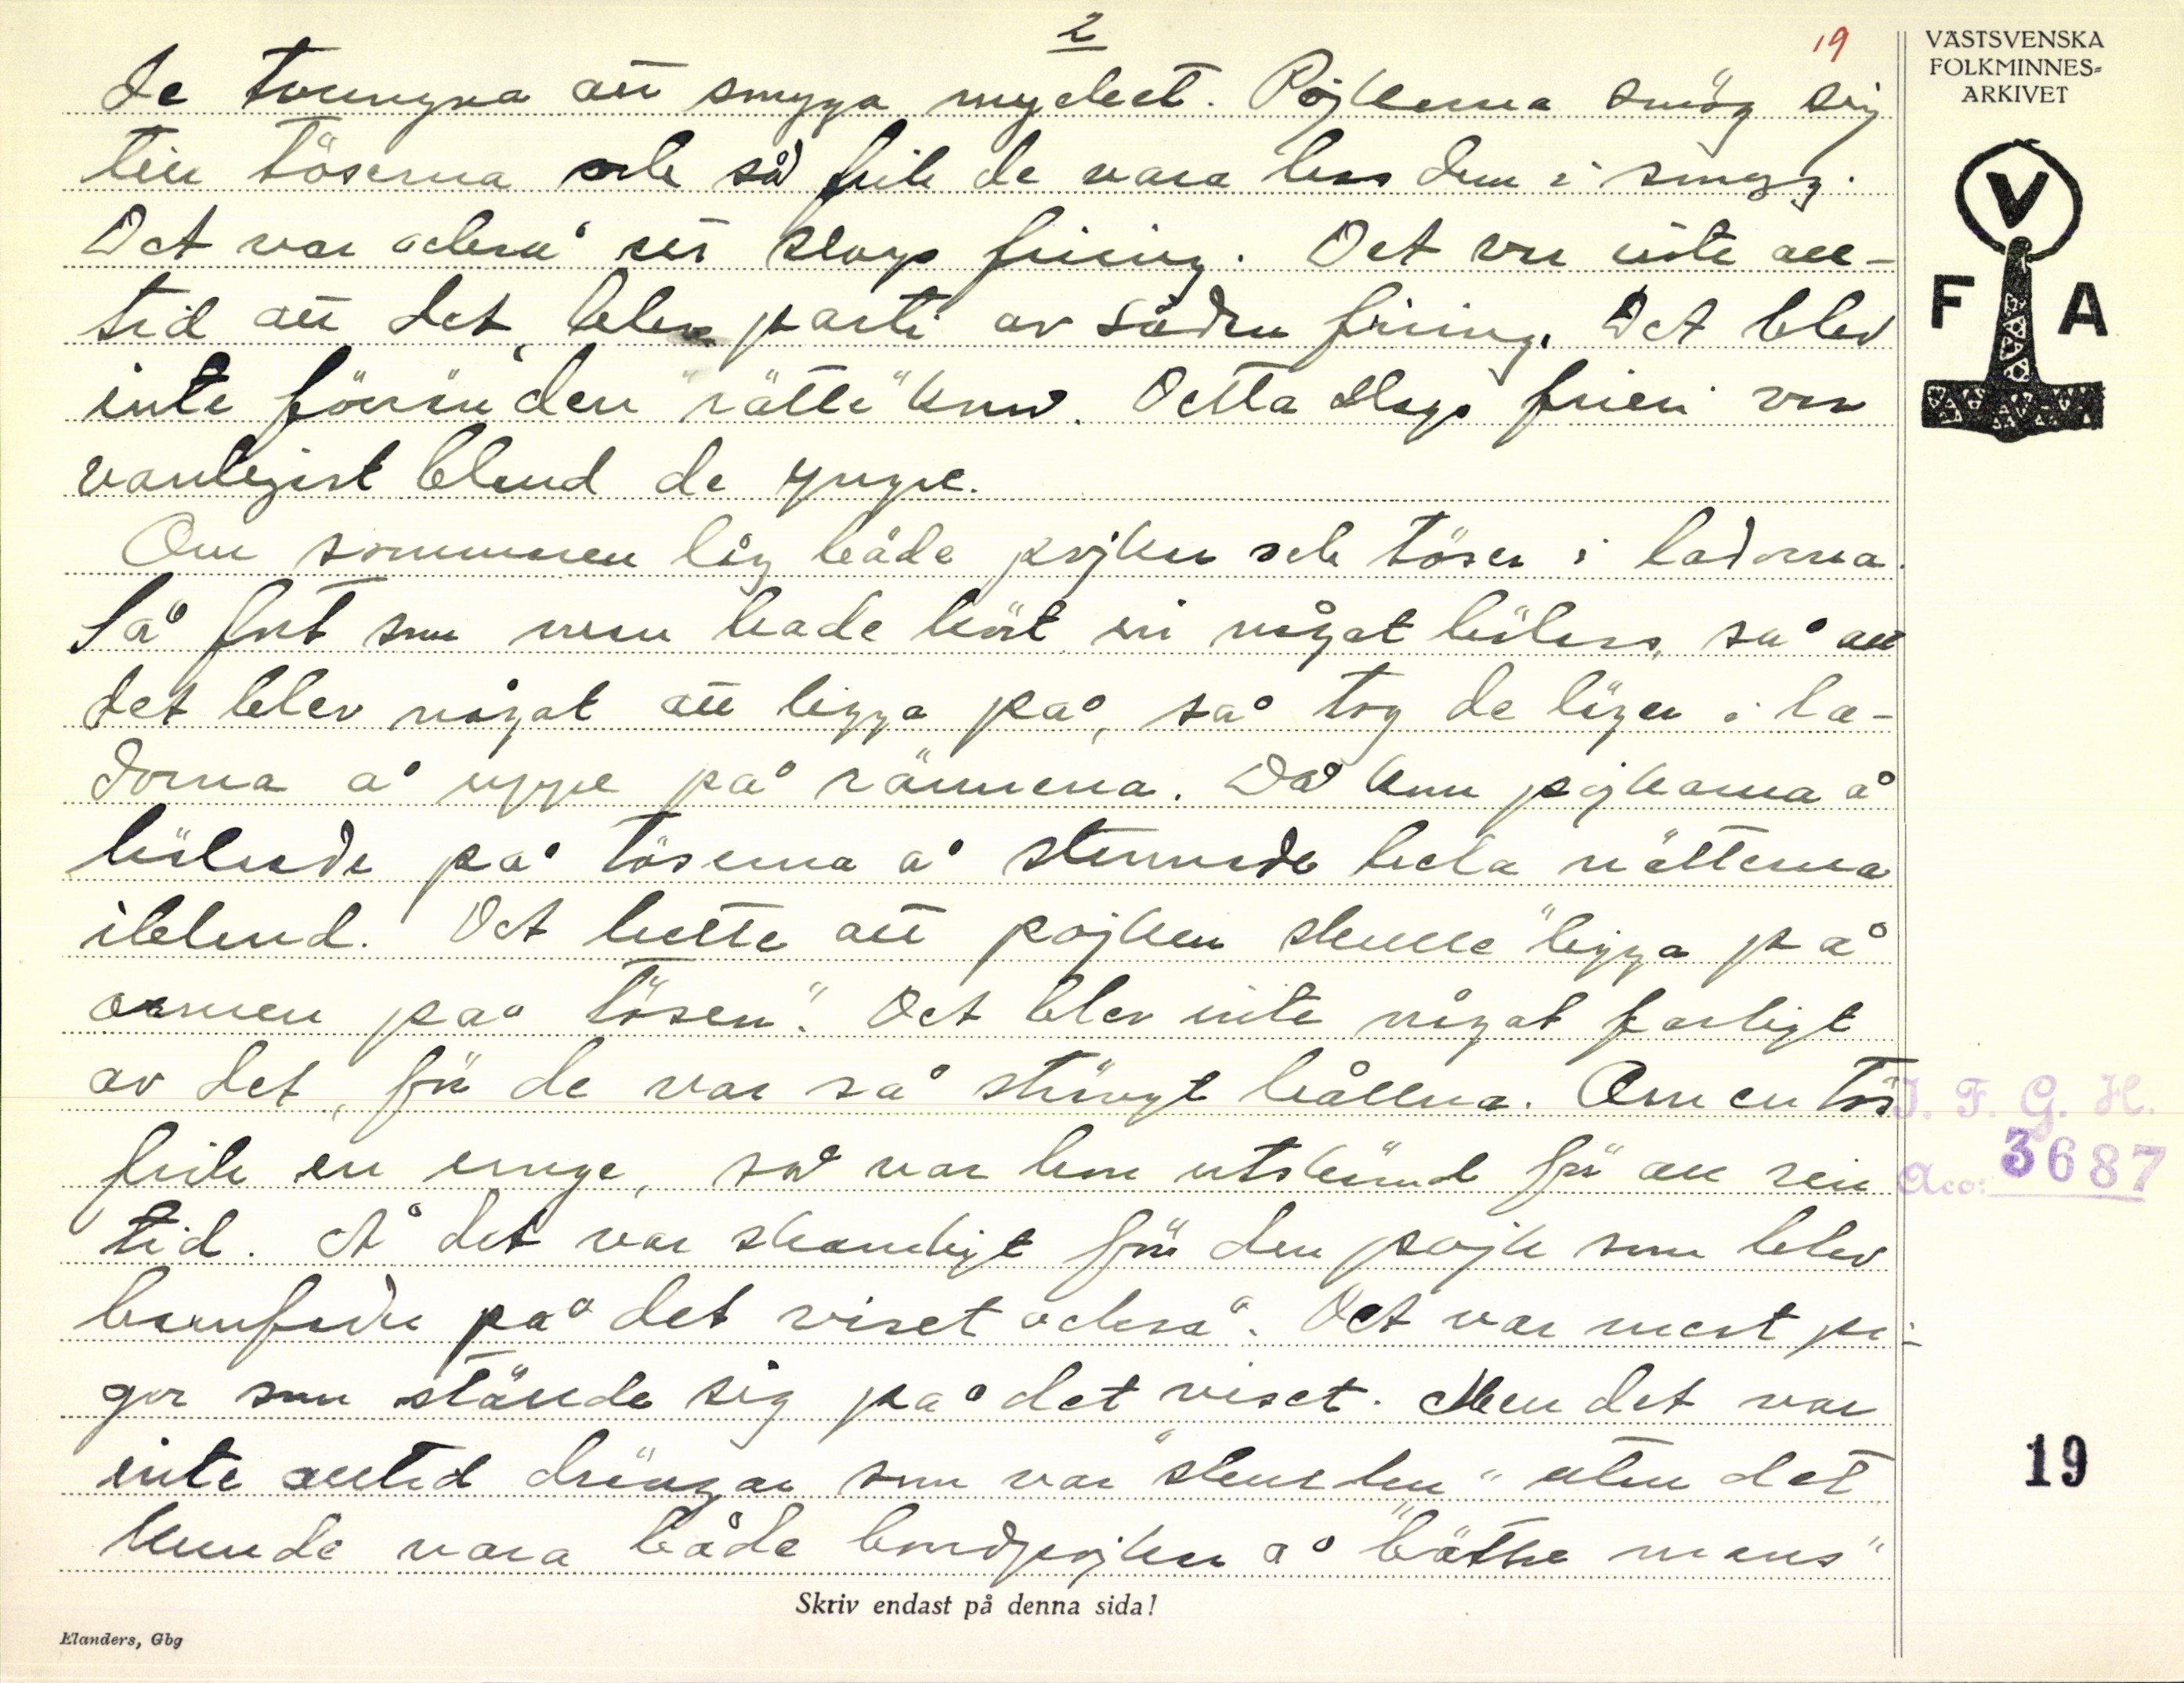 2
19
de tvungna att smyga mycket. Pojkarna smög sig
till töserna och så fick de vara hos dem i smyg.
Det var också ett slags friing. Det var inte all-
tid att det blev parti av sådan friing. Det blev
inte förrän den "rätte" kom. Detta slags frieri var
vanligast bland de yngre.
Om sommaren låg både pojkar och töser i ladorna.
Så fort som man hade kört in något hölass, så att
det blev något att ligga på, så tog de läger i la-
dorna å uppe på rännena. Då kom pojkarna å
hälsade på töserna å stannade hela nätterna
ibland. Det hette att pojken skulle "ligga på
armen på tösen". Det blev inte något farligt
av det, för de var så strängt hållna. Om en tös
fick en unge, så var hon utskämd för all sin
tid. Å det var skamligt för den pojk som blev
barnfader på det viset också. Det var mest pi-
gor som ställde sig på det viset. Men det var
inte alltid drängar som var "skulden" utan det
kunde vara både bondpojkar å "bättre mans"
Skriv endast på denna sida!
Elanders, Gbg
VÄSTSVENSKA
FOLKMINNES-
ARKIVET
V
F A
I. F. G. H.
Acc: 3687
19